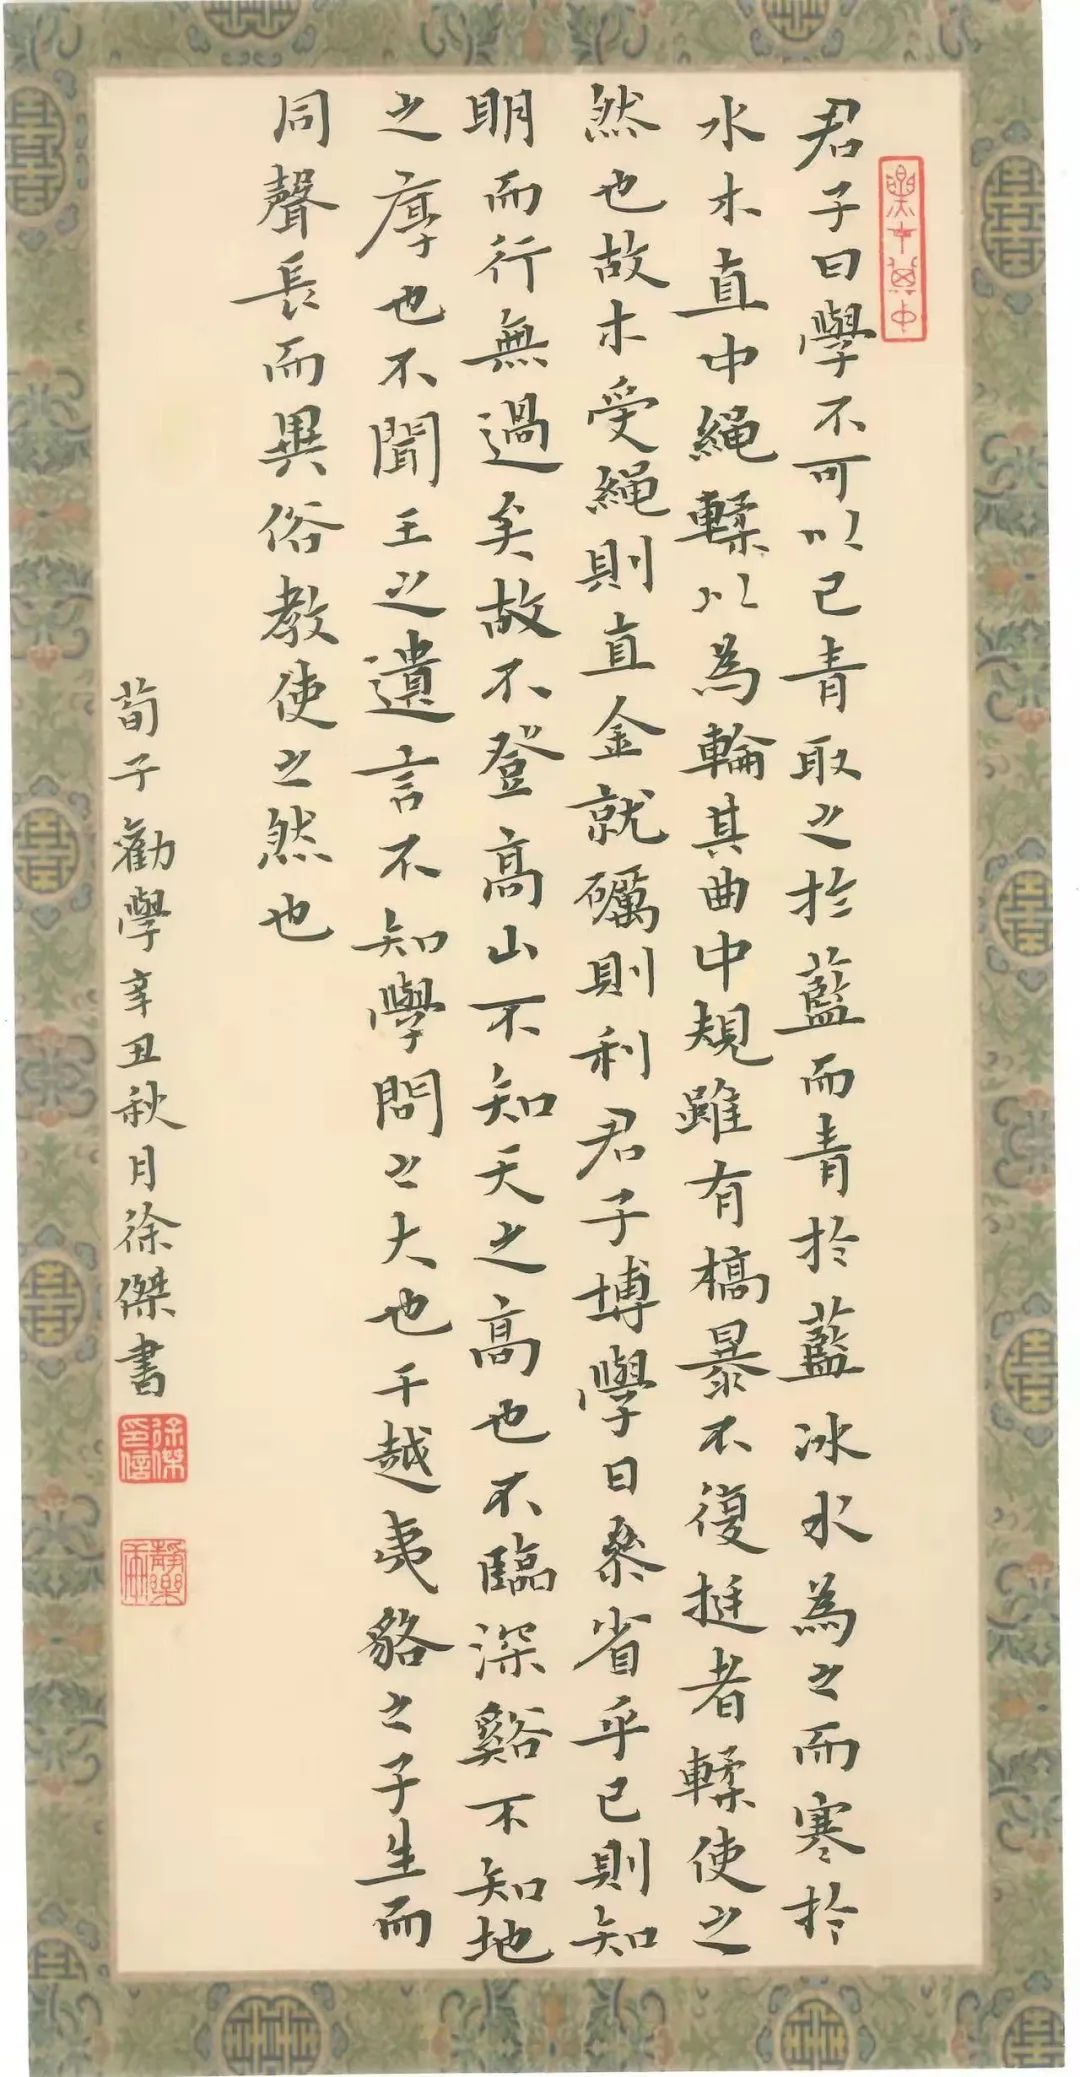 君子曰學不可以已青取之於藍而青於藍冰水為之而寒於
水木直中繩輮以為輪其曲中規雖有槁暴不復挺者輮使之
然也故木受繩則直金就礪則利君子博學日參省乎己則知
明而行無過矣故不登高山不知天之高也不臨深谿不知地
之厚也不聞王之遺言不知學問之大也干越夷貉之子生而
同聲長而異俗教使之然也
荀子勸學辛丑秋月徐傑書
徐傑印信